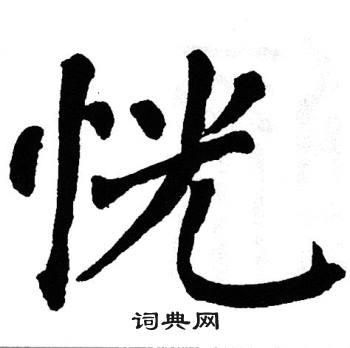 恍
词典网